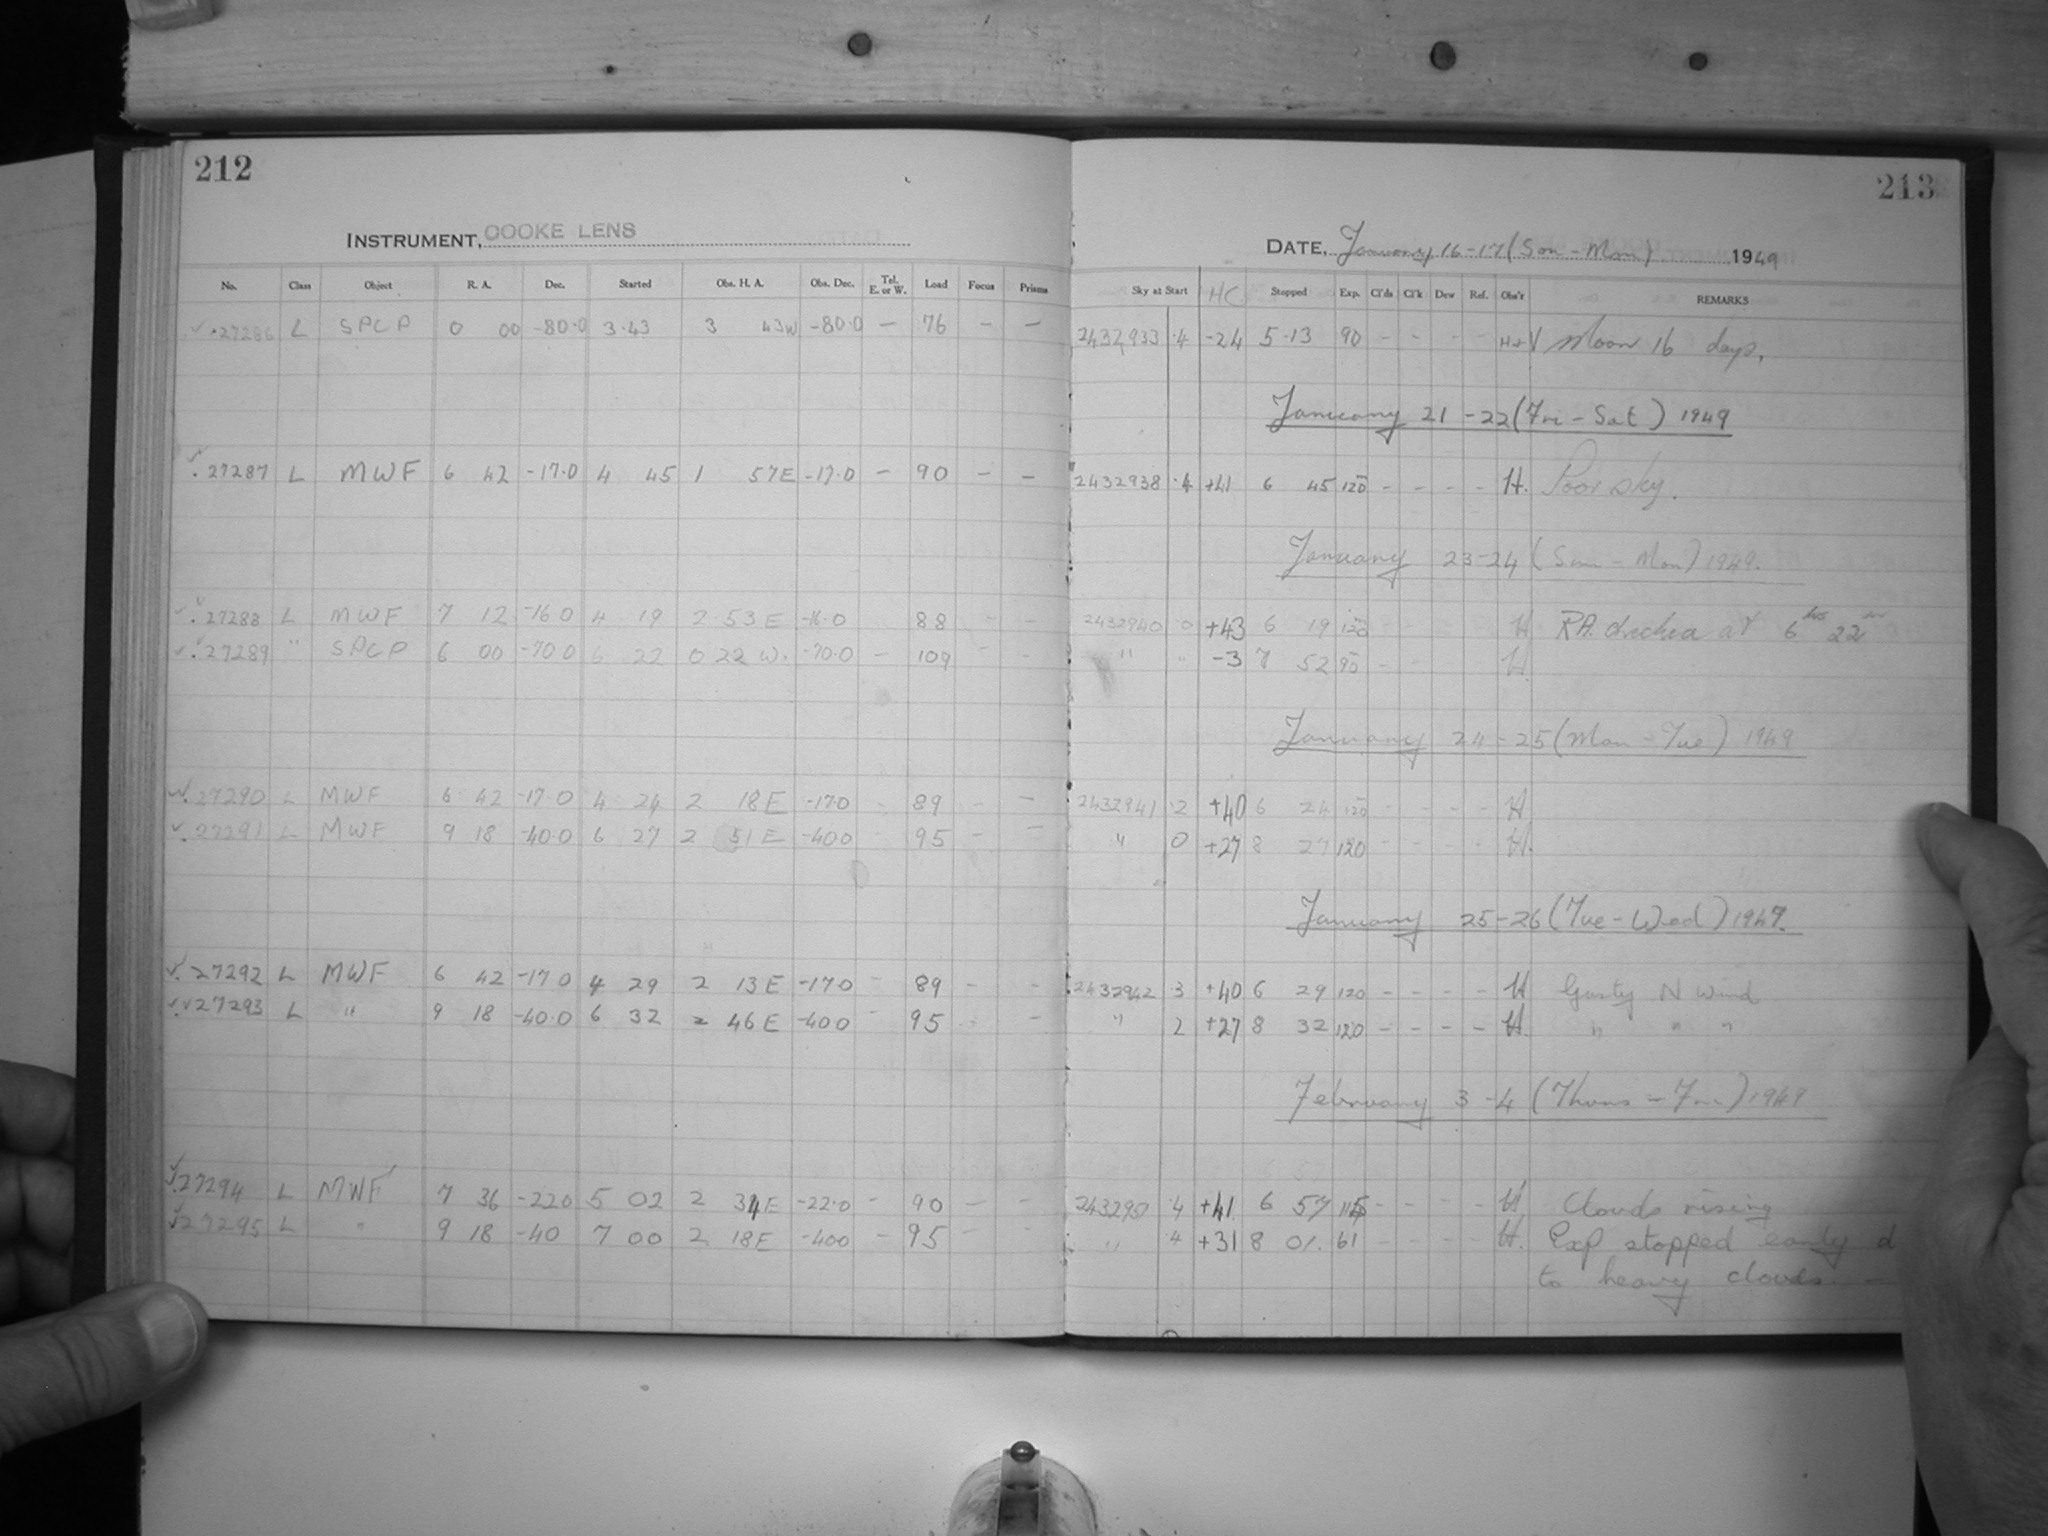 212
INSTRUMENT, COOKE LENS
No. Class Object R. A. Dec. Started Obs. H. A. Obs. Dec. Tel. E. or W. Load Focus Prisms
27286 L SPCP 0 00 -80.0 3.43 3 43W -80.0 - 76 - -
27287 L MWF 6 42 -17.0 4 45 1 57E -17.0 - 90 - -
27288 L MWF 7 12 -16 0 4 19 2 53 E -16.0 88 - -
27289 " SPCP 6 00 -70 0 6 22 0 22 W. -70.0 - 109 - -
27290 L MWF 6 42 -17.0 4 24 2 18E -170 - 89 - -
27291 L MWF 9 18 -40.0 6 27 2 51E -400 - 95 - -
27292 L MWF 6 42 -17 0 4 29 2 13E -170 - 89 - -
27293 L " 9 18 -40.0 6 32 2 46E -400 - 95 - -
27294 L MWF 7 36 -220 5 02 2 34E -22.0 - 90 - -
27295 L " 9 18 -40 7 00 2 18E -400 - 95 - -
213
DATE, January 16-17 (Sun - Mon) 1949
Sky at Start HC Stopped Exp. Cl'ds Cl'k Dew Ref. Obs'r REMARKS
2432933 .4 -24 5 13 90 - - - - H+V Moon 16 days,
January 21-22 (Fri - Sat) 1949
2432938 .4 +41 6 45 120 - - - - H. Poor sky.
January 23-24 (Sun - Mon) 1949.
2432940 .0 +43 6 19 120 - - - - H RA. checked at 6 hrs 22 m
" " -3 7 52 90 - - - - H
January 24-25 (Mon - Tue) 1949
2432941 .2 +40 6 24 120 - - - - H
" 0 +27 8 27 120 - - - - H.
January 25-26 (Tue - Wed) 1949.
2432942 .3 +40 6 29 120 - - - - H Gusty N wind
" 2 +27 8 32 120 - - - - H. " " "
February 3-4 (Thurs - Fri) 1949
243295 .4 +41 6 57 115 - - - - H Clouds rising
" .4 +31 8 01. 61 - - - - H. Exp stopped early d
to heavy clouds. -